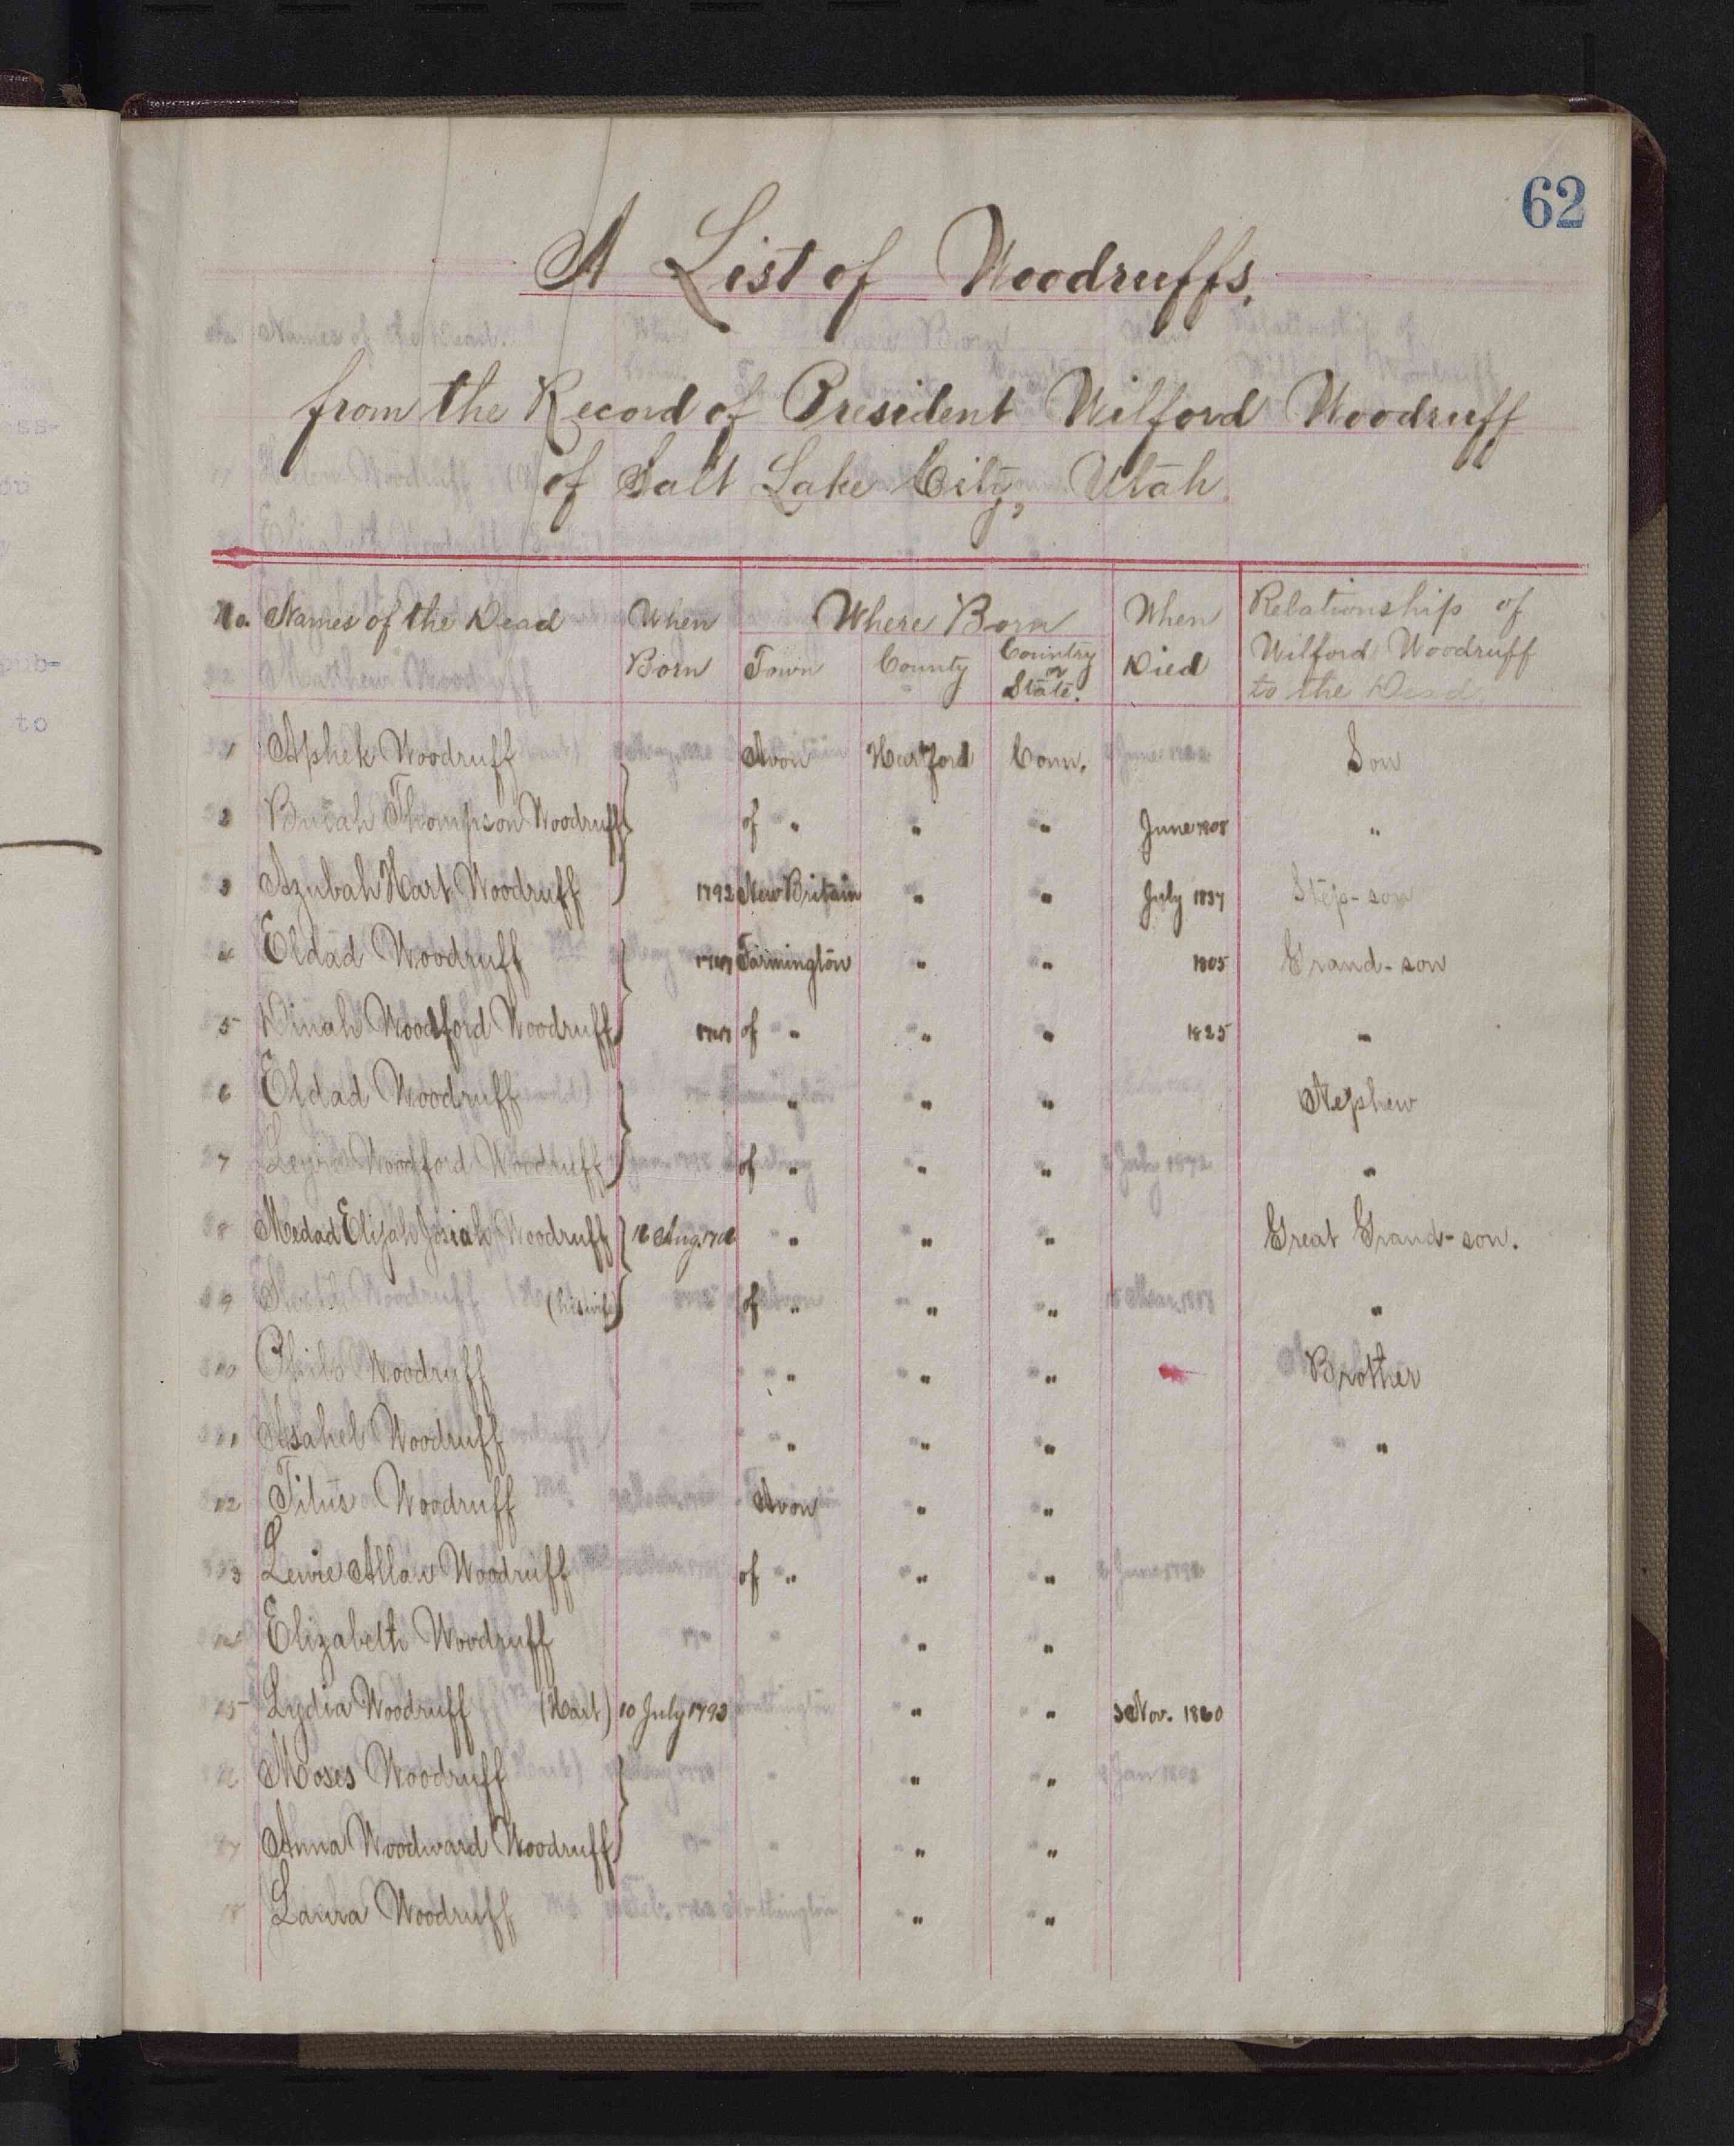 62
A List of Woodruffs,
from the Record of President Wilford Woodruff
of Salt Lake City, Utah
No. Names of the Dead When Born Where Born Town County Country or State. When Died Relationship of Wilford Woodruff to the Dead.
1 Aphek Woodruff Avon Hartford Conn. Son
2 Bulah Thompson Woodruff of " " " June 1808 "
3 Azubah Hart Woodruff 1792 New Britain " " July 1837 Step-son
4 Eldad Woodruff Farmington " " 1805 Grand-son
5 Dinah Woodford Woodruff of " " " 1825 "
6 Eldad Woodruff " " " Nephew
7 Woodford Woodruff of " " " "
8 Medad Elizah Josiah Woodruff 16 Aug. " " " Great Grand-son.
9 (his wife) of " " " "
10 Philo Woodruff " " " Brother
11 Asahel Woodruff " " " "
12 Titus Woodruff Avon " "
13 Allan Woodruff of " " "
14 Elizabeth Woodruff " "
15 Lydia Woodruff (Hart) 10 July 1793 " " Nov. 1860
16 Moses Woodruff " "
17 Anna Woodward Woodruff " "
18 Laura Woodruff " "
pub-
to